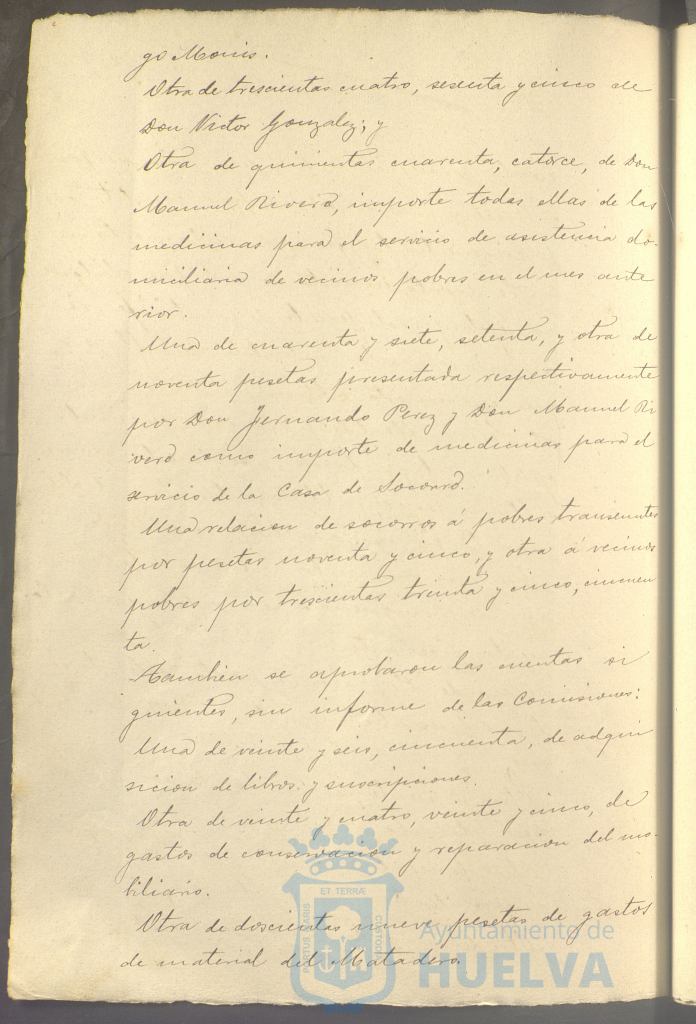 go Monis.
Otra de trescientas cuatro, sesenta y cinco de
Don Victor Gonzalez; y
Otra de quinientas cuarenta, catorce, de Don
Manuel Rivero, importe todas ellas de las
medicinas para el servicio de asistencia do-
miciliaria de vecinos pobres en el mes ante
rior.
Una de cuarenta y siete, setenta, y otra de
noventa pesetas presentada respectivamente
por Don Fernando Perez y Don Manuel Ri
vero como importe de medicinas para el
servicio de la Casa de Socorro.
Una relacion de socorros á pobres transeuntes
por pesetas noventa y cinco, y otra á vecinos
pobres por trescientas treinta y cinco, cincuen
ta.
Tambien se aprobaron las cuentas si
guientes, sin informe de las Comisiones:
Una de veinte y seis, cincuenta, de adqui
sicion de libros y suscripciones.
Otra de veinte y cuatro, veinte y cinco, de
gastos de conservacion y reparacion del mo-
biliario.
Otra de doscientas nueve pesetas de gastos
de material del Matadero.
PORTUS MARIS ET TERRÆ CUSTODIA
Ayuntamiento de
HUELVA